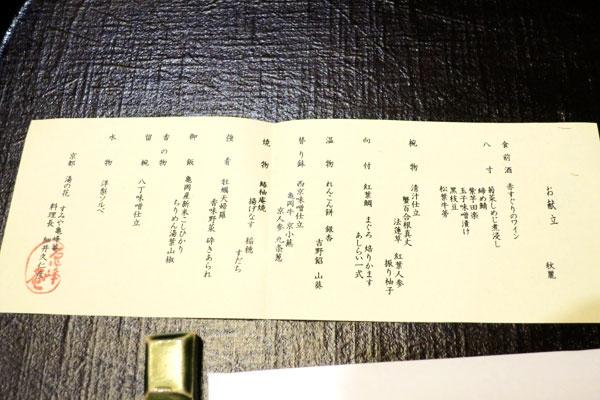 お献立 秋麗
食前酒 赤すぐりのワイン
八寸 菊菜しめじ煮浸し
締め鯖
紫芋田楽
玉子味噌漬け
黒枝豆
松葉牛蒡
椀物 清汁仕立
蟹百合根真丈 紅葉人参
法蓮草 振り柚子
向付 紅葉鯛 まぐろ 焙りかます
あしらい一式
温物 れんこん餅 銀杏
吉野餡 山葵
替り鉢 西京味噌仕立
亀岡牛 京小蕪
京人参 九条葱
焼物 鰆柚庵焼
揚げなす 稲穂
すだち
強肴 牡蠣天婦羅
香味野菜 砕きあられ
御飯 亀岡産新米こしひかり
香の物 ちりめん湯葉山椒
留椀 八丁味噌仕立
水物 洋梨ソルベ
京都 湯の花 すみや亀峰菴
料理長 細井久仁